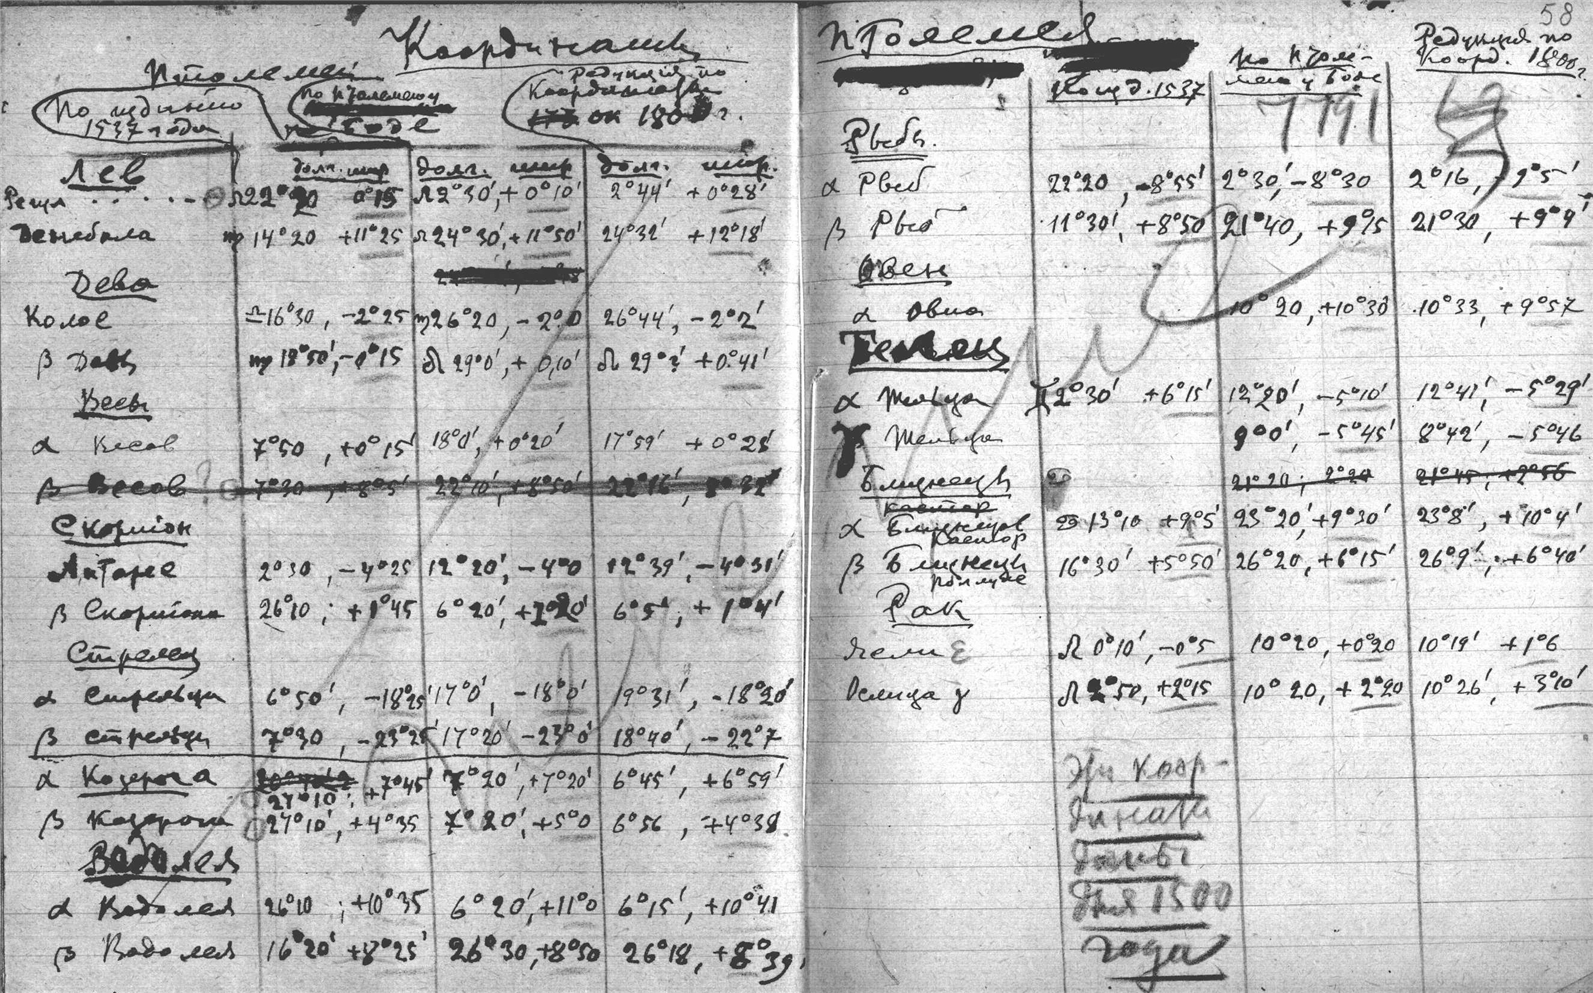 Координаты
Птолемей
По изданию
1537 года
по Птолемею у
Боде
Редукция по
Координатам
ок 1800 г.
долг. шир
долг. шир
долг. шир.
Лев
Регул ..... ♌22°20 0°15 ♌2°30', +0°10' 2°44' +0°28'
Денебола ♍ 14°20 +11°25 ♌24°30', +11°50' 24°32' +12°18'
Дева
Колос ♎16°30, -2°25 ♍26°20, -2°0 26°44', -2°2'
β Девы ♍ 18°50', -0°15 ♌ 29°0', +0,10' ♌ 29°?' +0°41'
Весы
α Весов 7°50, +0°15' 18°0', +0°20' 17°59' +0°25'
β Весов? 7°30, +8°5' 22°10', +8°50' 22°16', 8°32'
Скорпіон
Антарес 2°30, -4°25 12°20', -4°0 12°39', -4°31'
β Скорпіона 26°10; +1°45 6°20', +1°20' 6°5', +1°4'
Стрелец
α Стрельца 6°50', -18°25' 17°0', -18°0' 19°31', -18°20'
β Стрельца 7°30, -23°25' 17°20' -23°0' 18°40', -22°7
α Козерога 27°10'; +7°45' 7°20', +7°20' 6°45', +6°59'
β Козерога 27°10', +4°35 7°20', +5°0 6°56, +4°38
Водолея
α Водолея 26°10; +10°35 6°20', +11°0 6°15', +10°41
β Водолея 16°20' +8°25' 26°30, +8°50 26°18, +8°39'
58
Птолемея
По изд. 1537
По Птоле-
мею у Боде
Редукция по
Коорд. 1800 г.
1771
Рыбы.
α Рыб 22°20, -8°55' 2°30', -8°30 2°16, -9°5'
β Рыб 11°30', +8°50 21°40, +9°15 21°30, +9°4'
Овен
α Овна 10°20, +10°30 10°33, +9°57
Телец
α Тельца ♊2°30' +6°15' 12°20', -5°10' 12°41', -5°29'
γ Тельца 9°0', -5°45' 8°42', -5°46
Близнецы
кастор 21°20; 2°20 21°45; +2°56
α Близнецов ♋ 13°10 +9°5' 23°20', +9°30' 23°8', +10°4'
Кастор
β Близнецы 16°30' +5°50' 26°20, +6°15' 26°9'; +6°40'
Поллукс
Рак
Ясли ε ♌ 0°10', -0°5 10°20, +0°20 10°19' +1°6
Ослица γ ♌ 2°50, +2°15 10°20, +2°20 10°26', +3°10'
Эти коор-
динаты
даны
для 1500
года